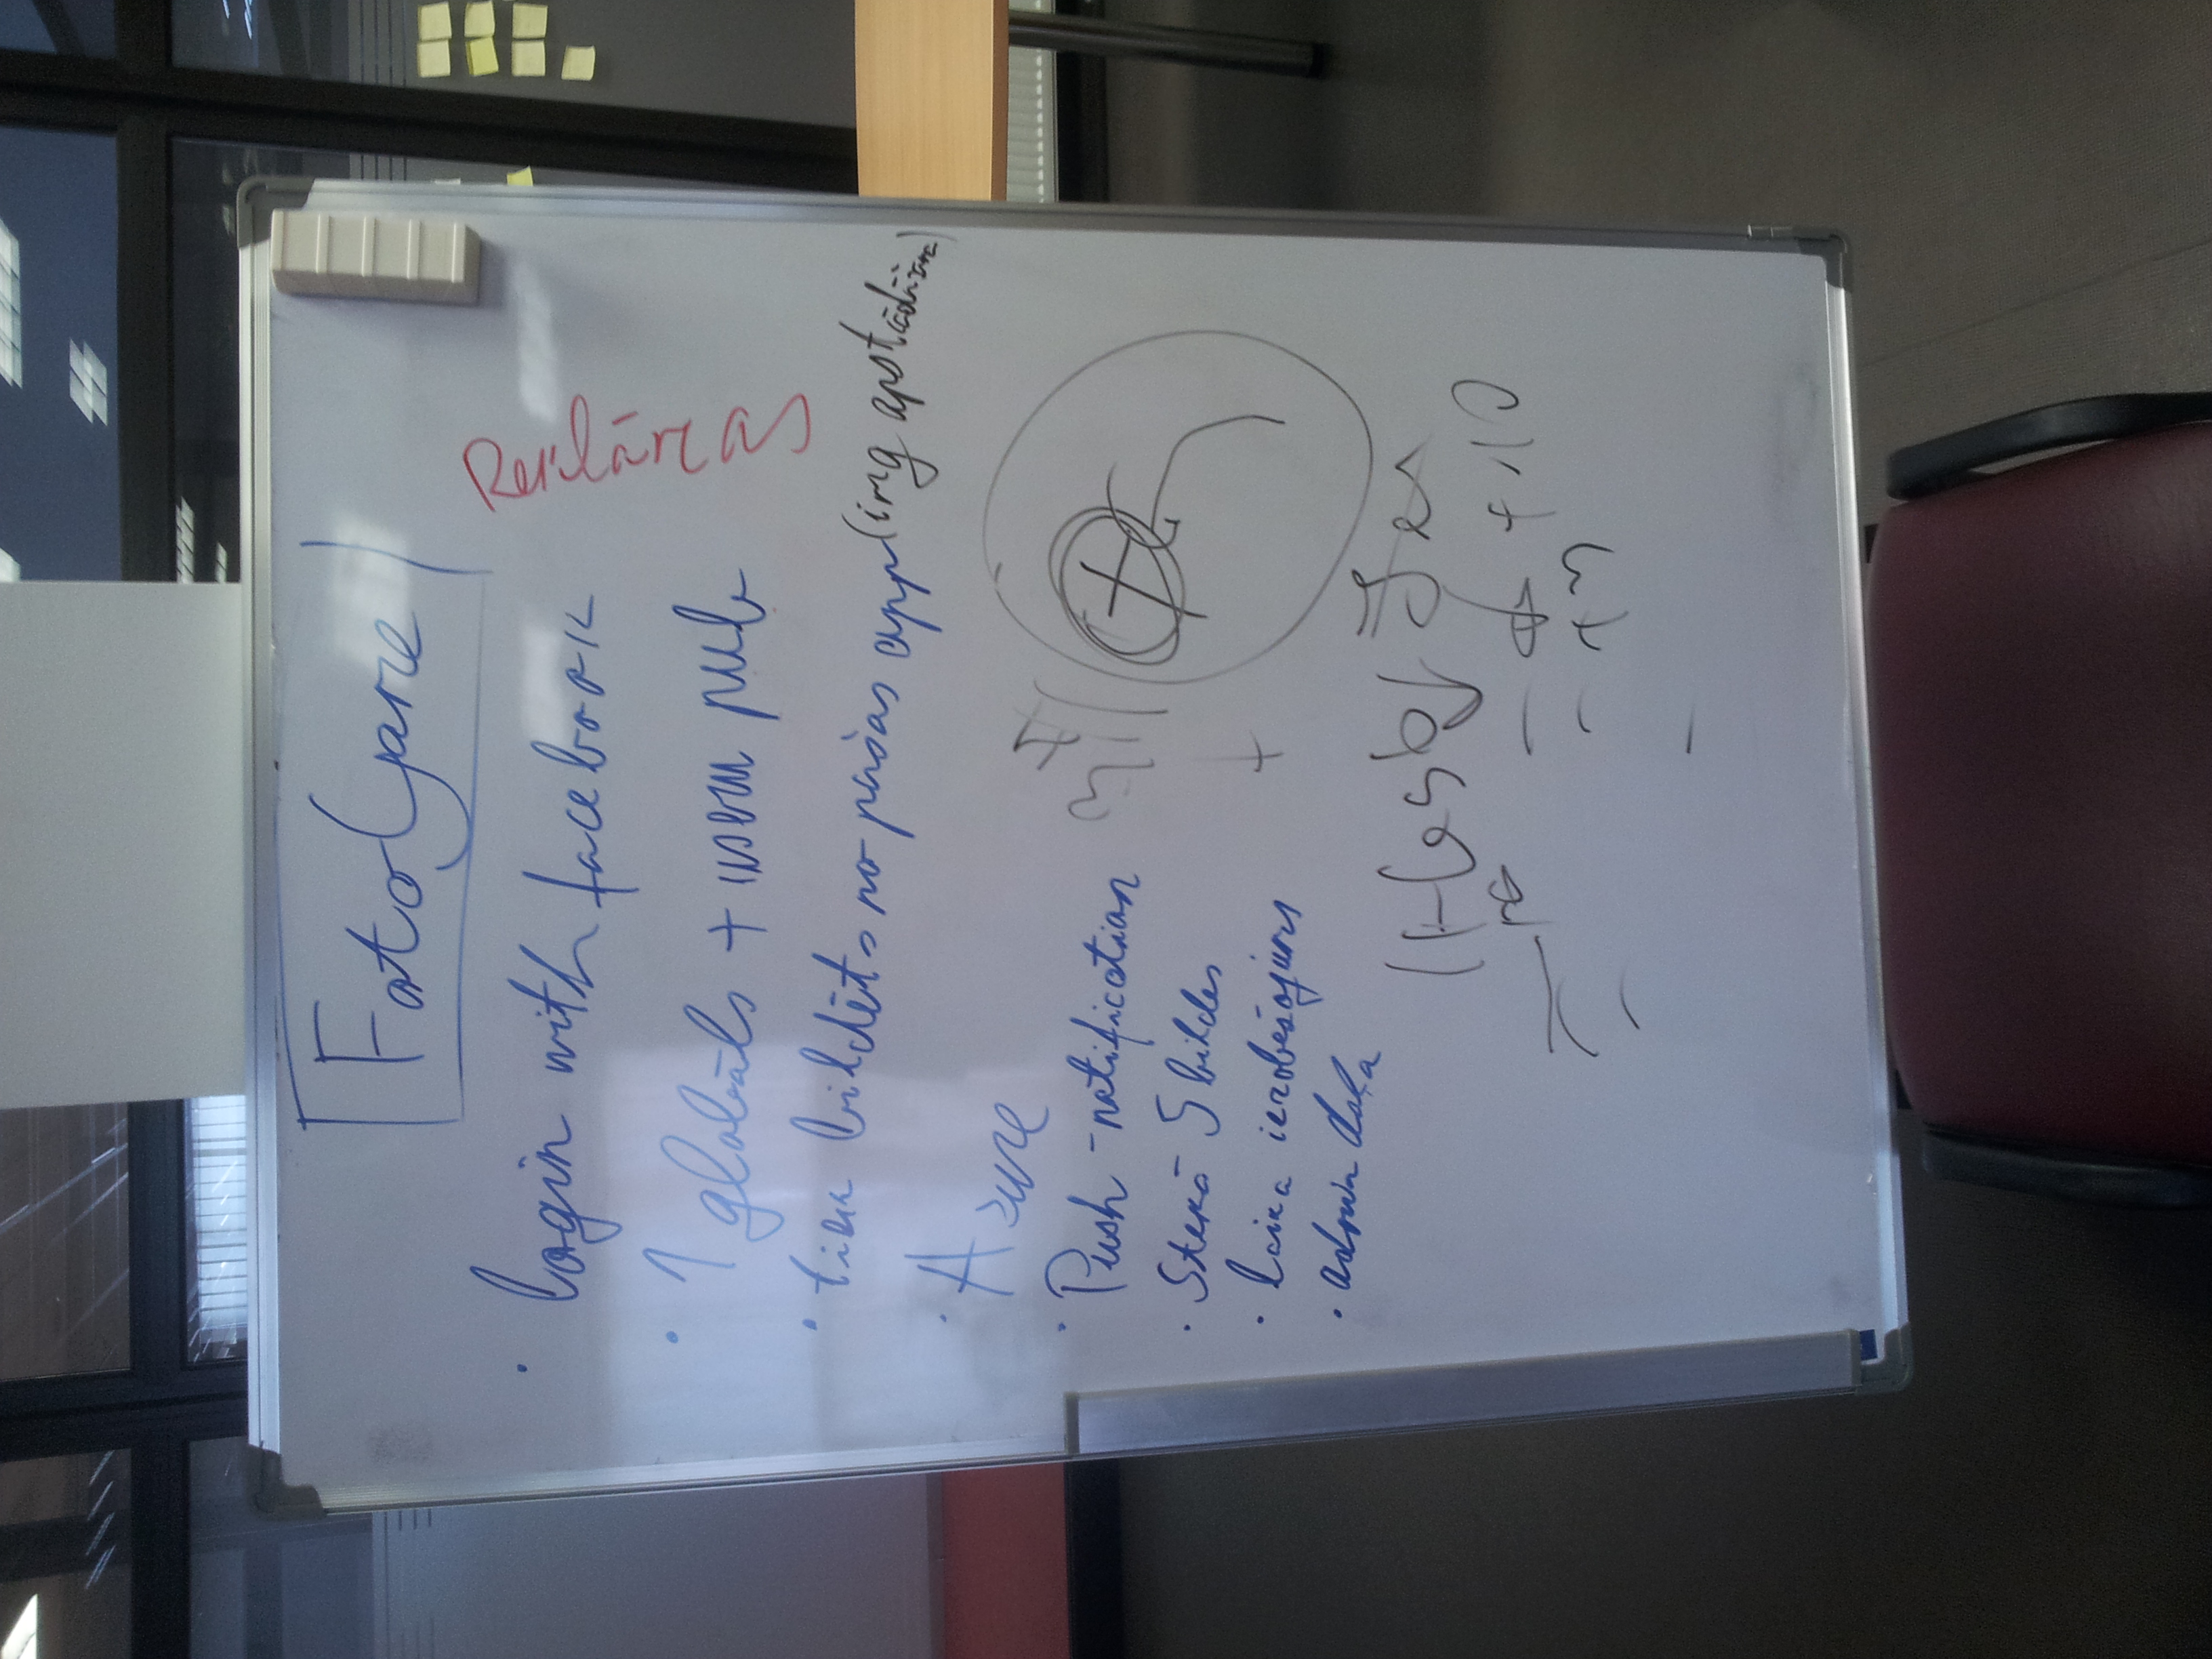 FotoGame
• login with facebook
• 1 globāls + useru pub
• tiek bildēts no pašas app (img apstrādāšana)
• Azure
• Push-notification
• Stekā 5 bildes
• laika ierobežojums
• admin daļa
Reklāras
+
+10
+3